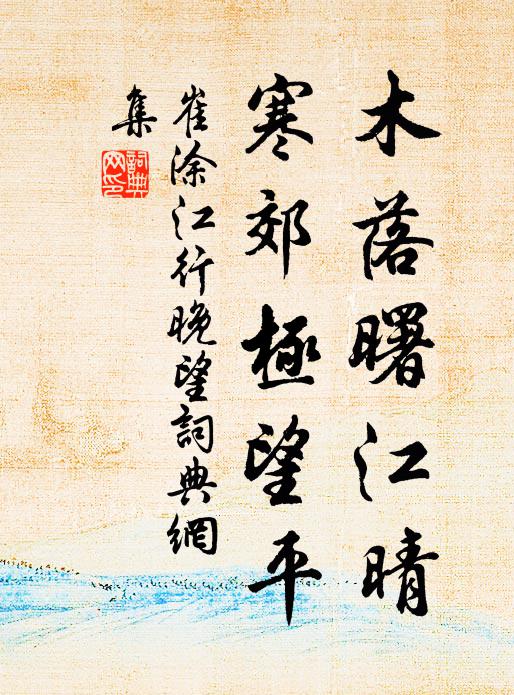 木落曙江晴
寒郊極望平
崔涂江行晚望詞典網
集
詞典
网印